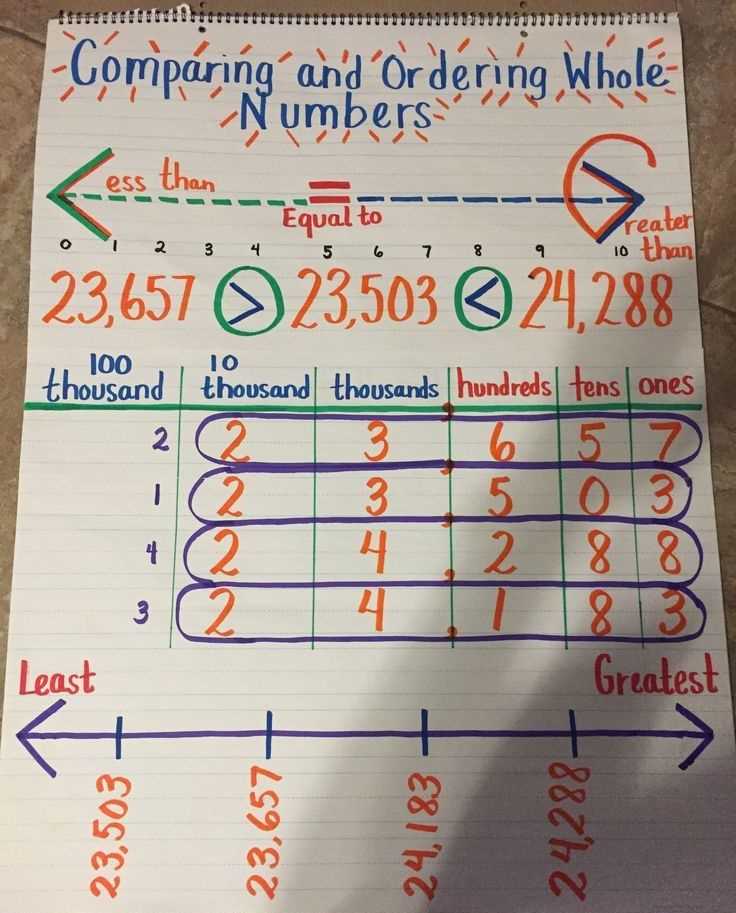 Comparing and Ordering Whole
Numbers
Less than
=
Equal to
Greater
than
0 1 2 3 4 5 6 7 8 9 10
23,657 > 23,503 < 24,288
100 thousand 10 thousand thousands hundreds tens ones
2 2 3, 6 5 7
1 2 3, 5 0 3
4 2 4, 2 8 8
3 2 4, 1 8 3
Least Greatest
23,503 23,657 24,183 24,288